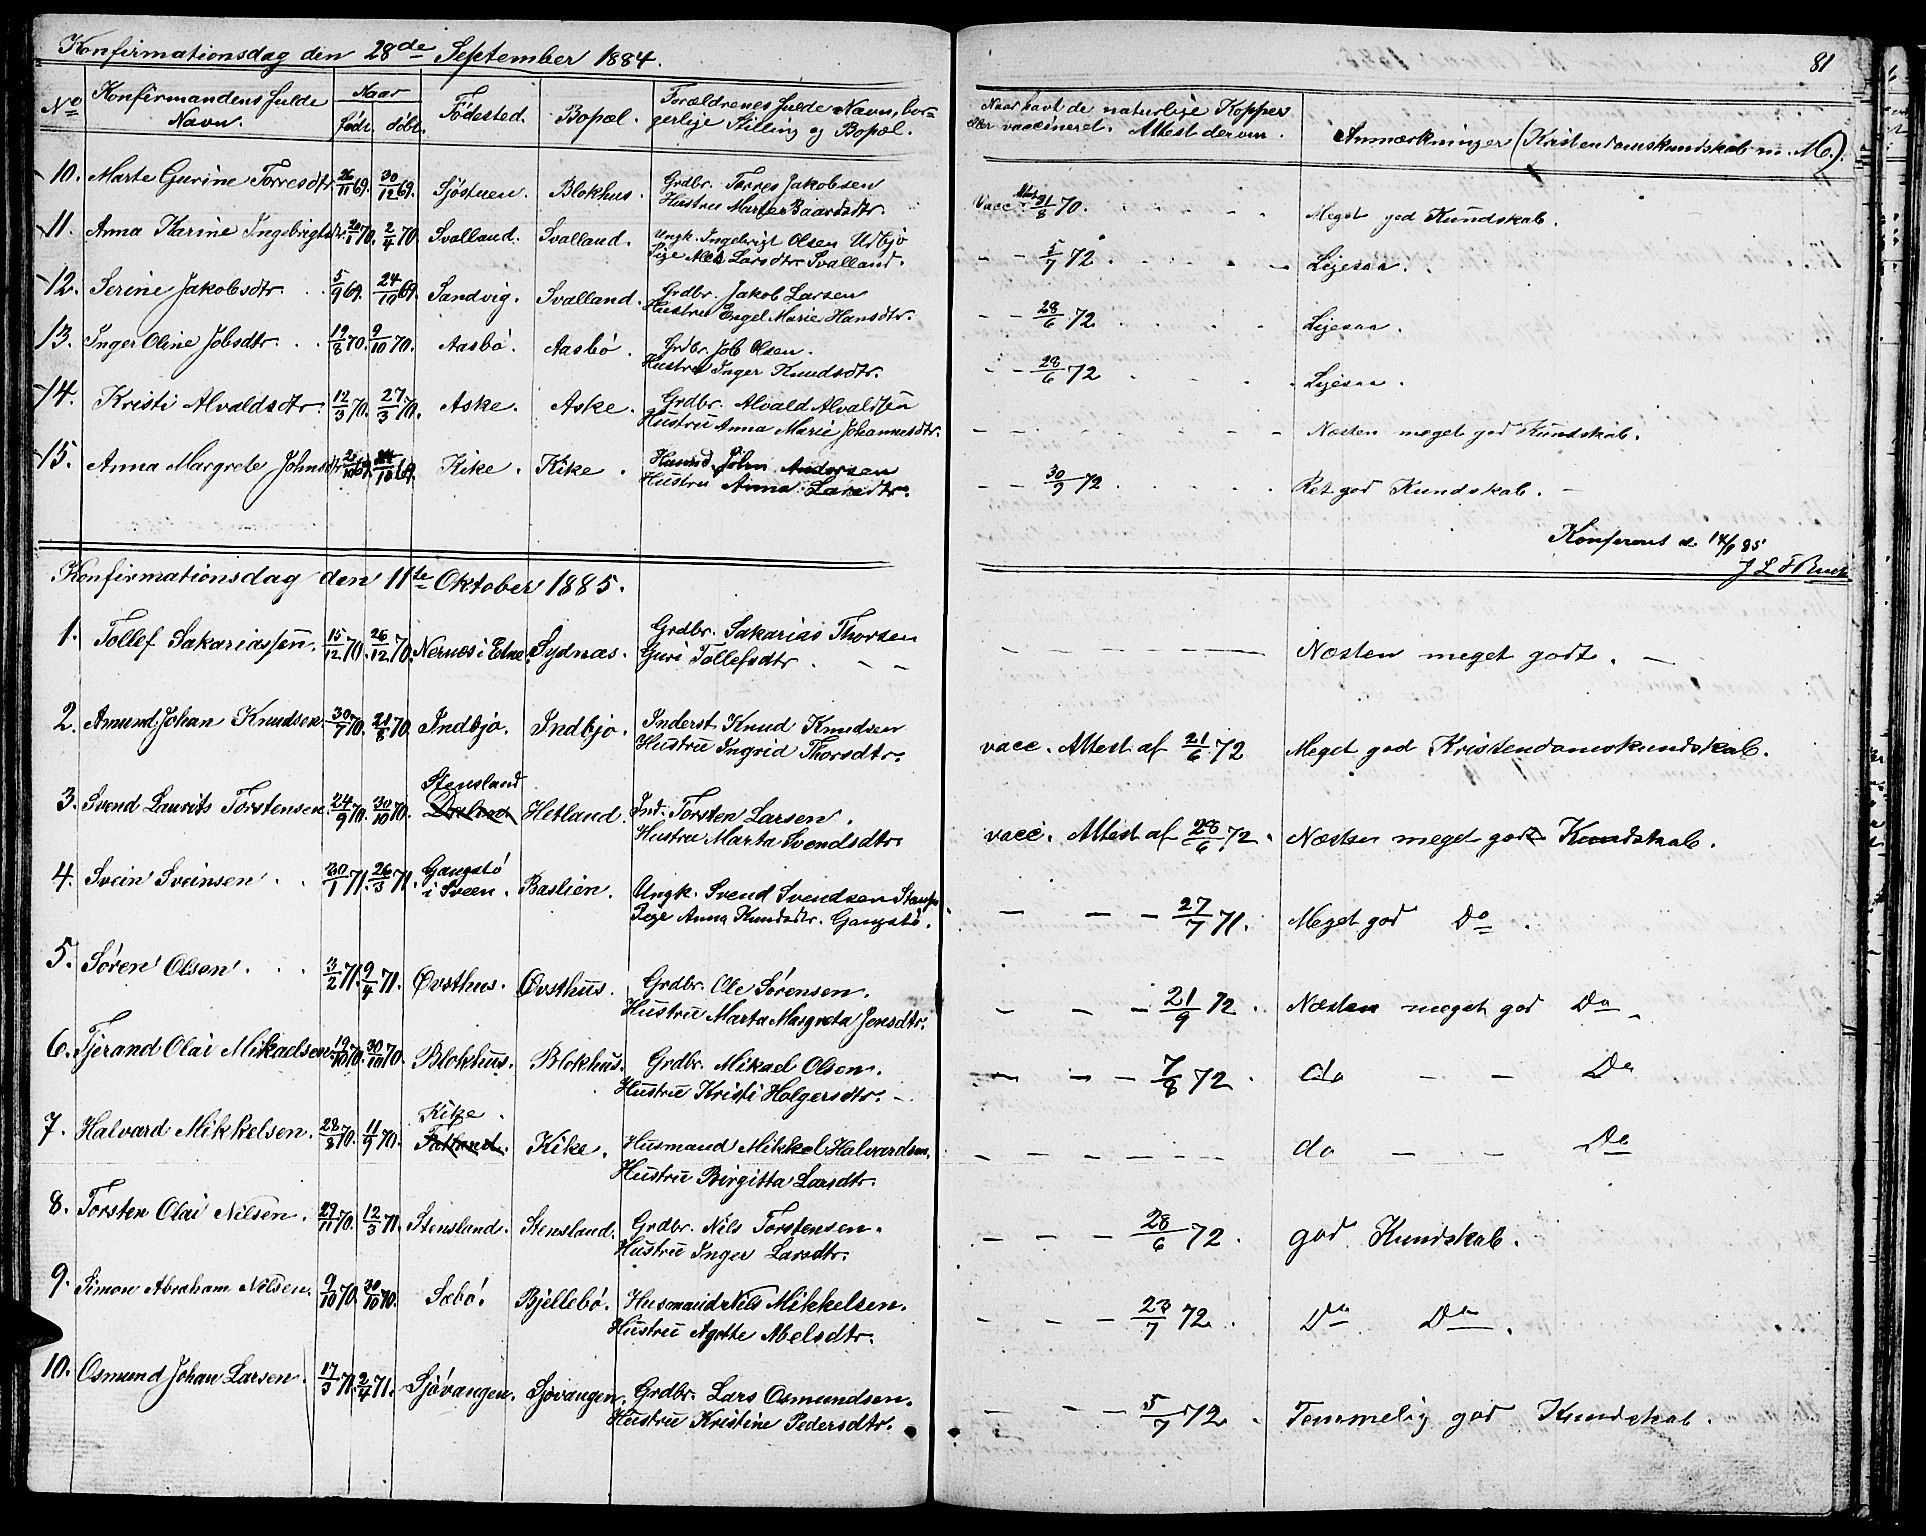 Konfirmationsdag den 28de September 1884.
81
No Konfirmandens fulde Navn. Naar født. døbt. Fødested. Bopæl. Forældrenes fulde Navn, borgerlige Stilling og Bopæl. Naar havt de naturlige Kopper eller vaccineret. Attest derom. Anmærkninger (Kristendomskundskab m. M.)
10. Marte Gurine Torresdtr 26/11 69. 30/12 69. Sjöstuen. Blokhus. Grdbr. Torres Jakobsen
Hustru Marte Baardsdtr. Vacc. Attest 31/8 70. Meget god Kundskab.
11. Anna Karine Ingebrigtsdtr. 20/1 70. 2/4 70. Svalland. Svalland. Ungk. Ingebrigt Olsen Udbjo
Pige Larsdtr Svalland. - - 5/7 72. Ligesaa.
12. Serine Jakobsdtr. 5/9 69. 24/10 69. Sandvig. Svalland. Grdbr. Jakob Larsen
Hustru Engel Marie Hansdtr. - - 28/6 72 Ligesaa.
13. Inger Oline Jobsdtr. 19/8 70. 9/10 70. Aasbö. Aasbö. Grdbr. Job Olsen.
Hustru Inger Knudsdtr. - - 28/6 72 Ligesaa.
14. Kristi Alvaldsdtr. 12/3 70. 27/3 70. Aske. Aske. Grdbr. Alvald Alvaldsen
Hustru Anna Marie Johannesdtr. - - - Næsten meget god Kundskab.
15. Anna Margrete Johnsdtr. 69. 24/10 69. Kike. Kike. Husmd. John Andersen
Hustru Anna Larsdtr. - - 30/9 72. Ret god Kundskab. -
Konfereret d. 14/9 85
J L F
Konfirmationsdag den 11te Oktober 1885.
1. Tollef Sakariassen. 15/12 70. 26/12 70. Nernes i Etne. Sydnæs. Grdbr. Sakarias Thorsen
Guri Tollefsdtr. - - - - - - Næsten meget godt. -
2. Amund Johan Knudsen 30/7 70. 21/8 70. Indbjo. Indbjo. Inderst Knud Knudsen
Hustru Ingrid Thorsdtr. vacc. Attest af 21/6 72 Meget god Kristendomskundskab.
3. Svend Laurits Torstensen. 24/9 70. 30/10 70. Stensland Hetland. Ind. Torsten Larsen.
Hustru Marta Svendsdtr. vacc. Attest af 28/6 72. Næsten meget godt Kundskab.
4. Svein Sveinsen. 30/1 71. 26/3 71. Gangstö i Sveen. Baslien. Ungk. Svend Svendsen
Pige Anna Knudsdtr. Gangstö. - - - 27/7 71. Meget god Do.
5. Sören Olsen. 3/2 71. 9/4 71. Øvsthus. Øvsthus. Grdbr. Ole Sörensen.
Hustru Marta Margreta Jensdtr. - - - 21/9 72. Næsten meget god Do.
6. Tjerand Olai Mikaelsen 19/10 70. 30/10 70. Blokhus. Blokhus. Grdbr. Mikael Olsen.
Hustru Kristi Holgersdtr. - - - - 7/8 72. do - - Do
7. Halvard Mikkelsen. 28/8 70. 11/9 70. Kike. Kike. Husmand Mikkel Halvardsen.
Hustru Birgitta Larsdtr. - - - - - do - - Do
8. Torsten Olai Nilsen. 29/11 70. 12/3 71. Stensland. Stensland. Grdbr. Nils Torstensen.
Hustru Inger Larsdtr. - - - 28/6 72. god Kundskab.
9. Simon Abraham Nilsen. 9/10 70. 30/10 70. Sæbö. Bjellebö. Husmand Nils Mikkelsen.
Hustru Agthe Abelsdtr. - - - 23/7 72. Do Do.
10. Osmund Johan Larsen. 17/3 71. 2/4 71. Sjövangen. Sjövangen. Grdbr. Lars Osmundsen.
Hustru Kristine Pedersdtr. - - - 5/7 72. Temmelig god Kundskab.